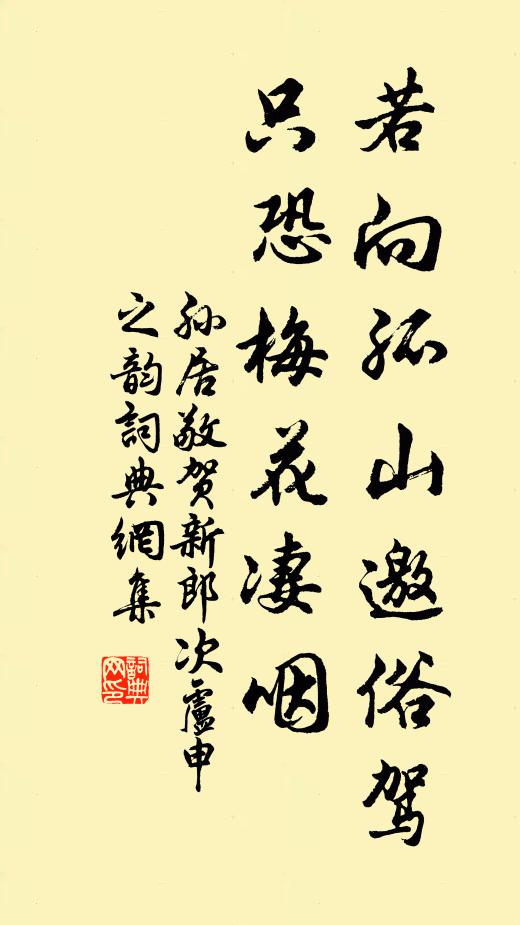 若向孤山邀俗驾
只恐梅花凄咽
孙居敬贺新郎次卢申
之韵词典網集
詞典网印